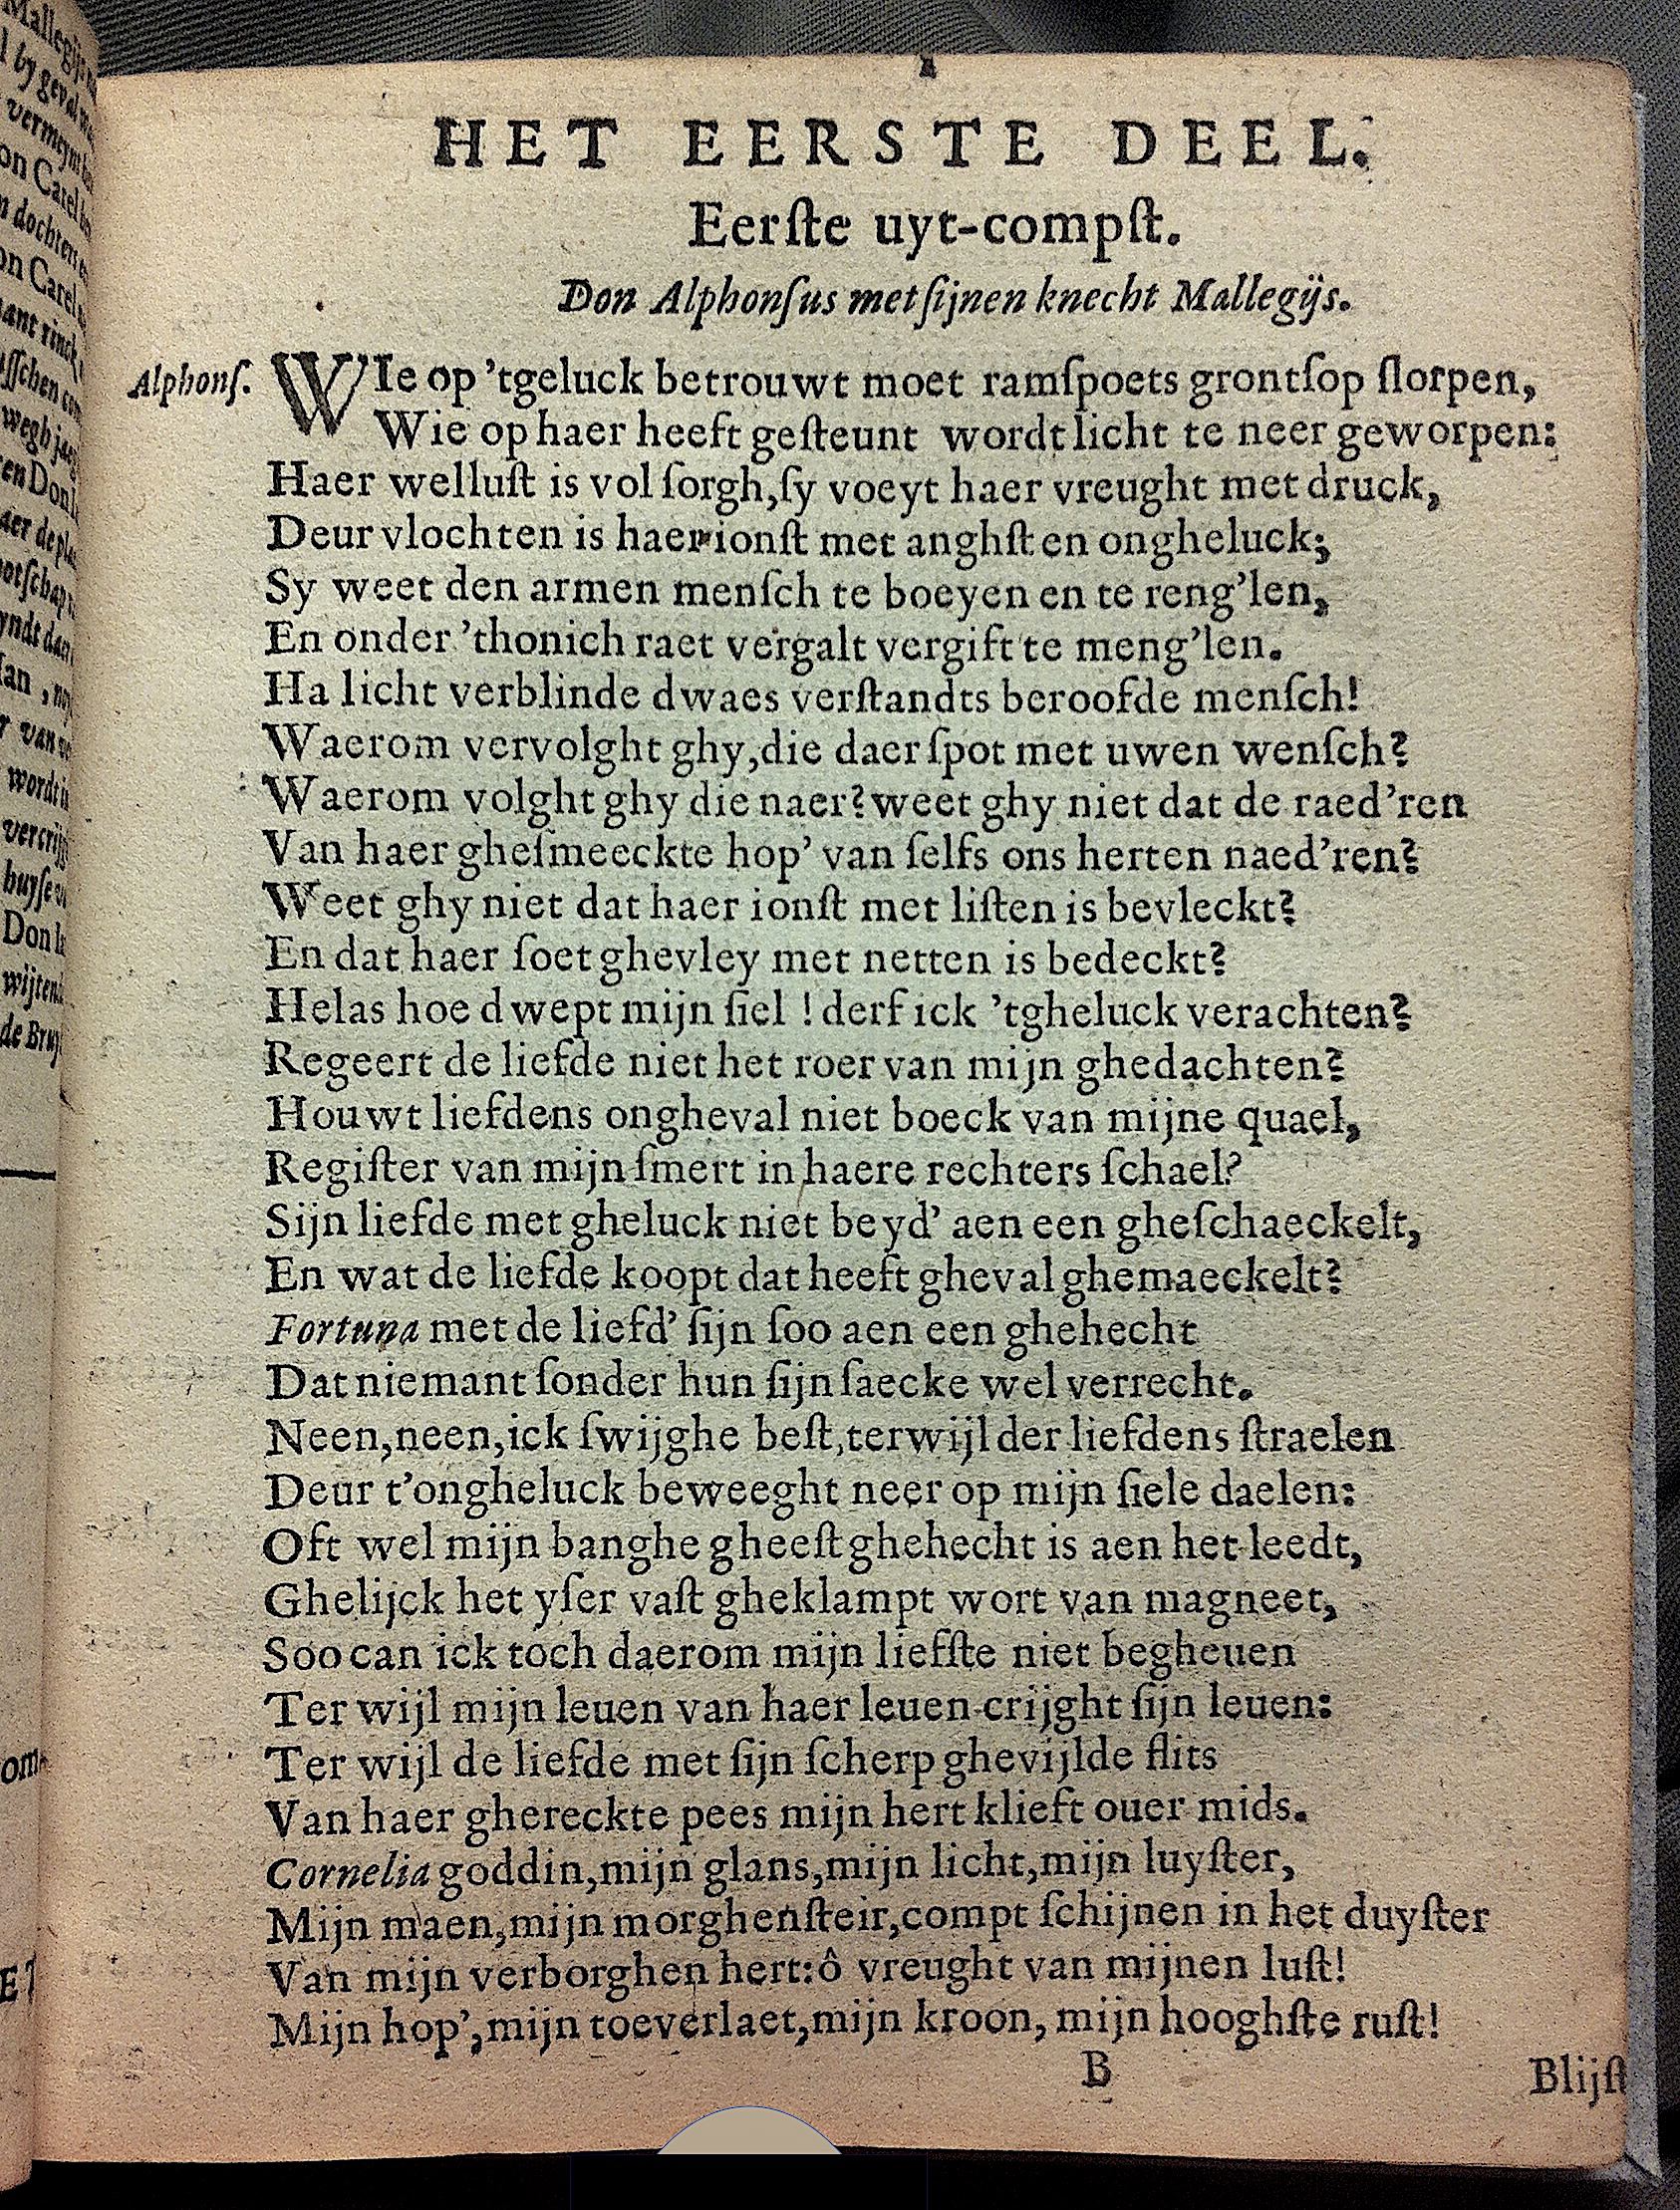 HET EERSTE DEEL.
Eerſte uyt-compſt.
Don Alphonſus met ſijnen knecht Mallegijs.
Alphonſ. WIe op 'tgeluck betrouwt moet ramſpoets grontſop ſlorpen,
Wie op haer heeft geſteunt wordt licht te neer geworpen:
Haer welluſt is vol ſorgh, ſy voeyt haer vreught met druck,
Deur vlochten is haer ionſt met anghſt en ongheluck;
Sy weet den armen menſch te boeyen en te reng'len,
En onder 'thonich raet vergalt vergift te meng'len.
Ha licht verblinde dwaes verſtandts beroofde menſch!
Waerom vervolght ghy, die daer ſpot met uwen wenſch?
Waerom volght ghy die naer? weet ghy niet dat de raed'ren
Van haer gheſmeeckte hop' van ſelfs ons herten naed'ren?
Weet ghy niet dat haer ionſt met liſten is bevleckt?
En dat haer ſoet ghevley met netten is bedeckt?
Helas hoe dwept mijn ſiel ! derf ick 'tgheluck verachten?
Regeert de liefde niet het roer van mijn ghedachten?
Houwt liefdens ongheval niet boeck van mijne quael,
Regiſter van mijn ſmert in haere rechters ſchael?
Sijn liefde met gheluck niet beyd' aen een gheſchaeckelt,
En wat de liefde koopt dat heeft gheval ghemaeckelt?
Fortuna met de liefd' ſijn ſoo aen een ghehecht
Dat niemant ſonder hun ſijn ſaecke wel verrecht.
Neen, neen, ick ſwijghe beſt, terwijl der liefdens ſtraelen
Deur t'ongheluck beweeght neer op mijn ſiele daelen:
Oft wel mijn banghe gheeſt ghehecht is aen het leedt,
Ghelijck het yſer vaſt gheklampt wort van magneet,
Soo can ick toch daerom mijn liefſte niet begheuen
Ter wijl mijn leuen van haer leuen crijght ſijn leuen:
Ter wijl de liefde met ſijn ſcherp ghevijlde flits
Van haer ghereckte pees mijn hert klieft ouer mids.
Cornelia goddin, mijn glans, mijn licht, mijn luyſter,
Mijn maen, mijn morghenſteir, compt ſchijnen in het duyſter
Van mijn verborghen hert: ô vreught van mijnen luſt!
Mijn hop', mijn toeverlaet, mijn kroon, mijn hooghſte ruſt!
B
Blijſt